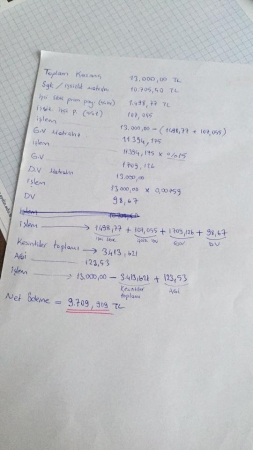 Toplam Kazanç 13.000,00 TL
Sgk / işsizlik matrahı 10.705,50 TL
işçi 1498,77 TL
107,055
işlem 13.000,00 - (1498,77 + 107,055)
GV Matrahı 11.394,175
işlem 11394,175 x 0/015
GV 1709,126
DV Matrahı 13.000,00
işlem 13.000,00 x 0,00759
DV 98,67
işlem 1498,77 + 107,055 + 1709,126 + 98,67
GV DV
Kesintiler toplamı → 3413,621
Agi 123,53
işlem → 13.000,00 - 3.413,621 + 123,53
Kesintiler toplamı Agi
Net Ödeme = 9.709,909 TL